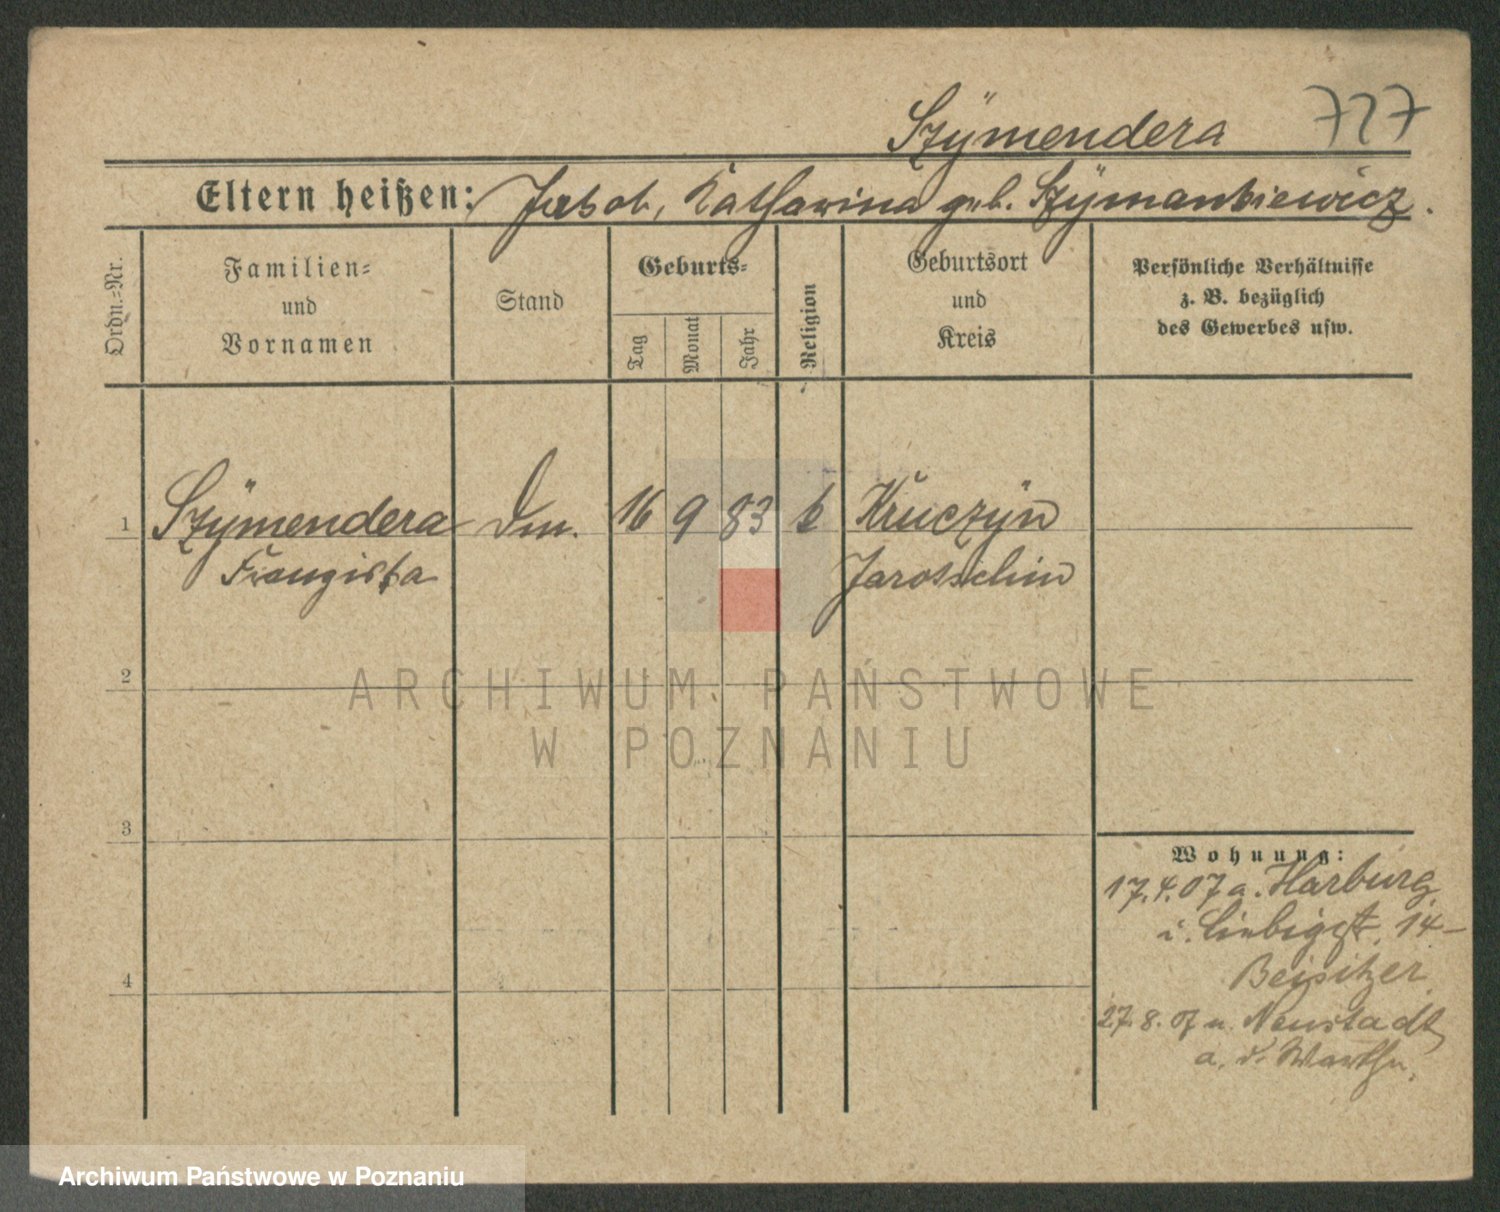 Szÿmendera 727
Eltern heißen: Jakob, Katharina geb. Szÿmankiewicz.
Ordn.=Nr.
Familien=
und
Vornamen
Stand
Geburts=
Tag
Monat
Jahr
Religion
Geburtsort
und
Kreis
Persönliche Verhältnisse
z. B. bezüglich
des Gewerbes usw.
1 Szÿmendera 16 9 83 k Kruczÿn
Jarotschin
2
ARCHIWUM PAŃSTWOWE
W POZNANIU
3
Wohnung:
17.4.07 a. Harburg
i. Liebigst. 14-
Beisitzer
4
27.8.07 n. Neustadt
a. d. Warthe.
Archiwum Państwowe w Poznaniu